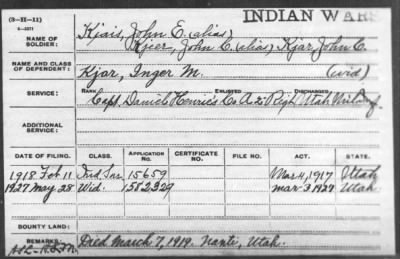 (3-H-11)
INDIAN WARS
NAME OF SOLDIER:
Kjais, John E. (alias)
Kjer, John C. (alias) Kjar, John C.
NAME AND CLASS OF DEPENDENT:
Kjar, Inger M. (wid)
SERVICE:
RANK ENLISTED DISCHARGED
Capt. Daniel Henrie's Co. A. 2" Regt Utah
ADDITIONAL SERVICE:
DATE OF FILING. CLASS. APPLICATION No. CERTIFICATE No. FILE No. ACT. STATE.
1918 Feb 11 Ind. Sur. 15659 Mar 4, 1917 Utah
1927 May 28 Wid. 1582329 Mar 3 1927 Utah.
BOUNTY LAND:
REMARKS:
Died March 7, 1919. Manti, Utah.